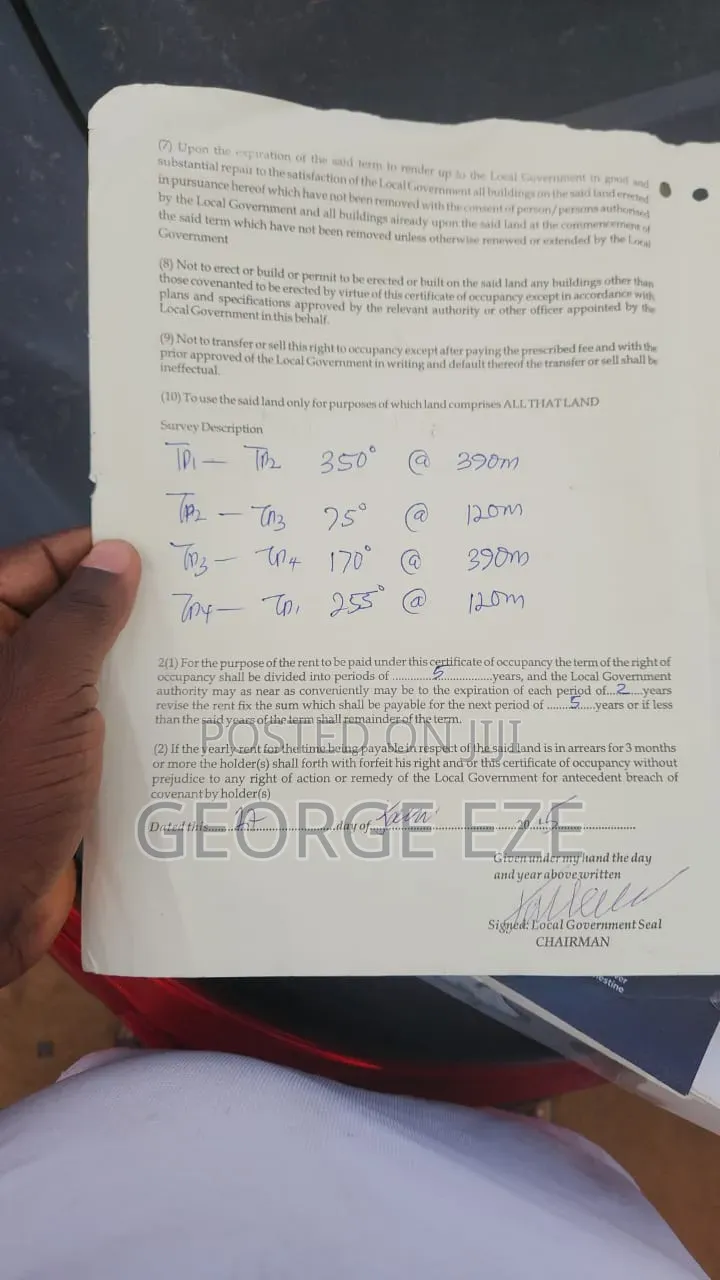 (7) Upon the expiration of the said term to render up to the Local Government in good and
substantial repair to the satisfaction of the Local Government all buildings on the said land erected
in pursuance hereof which have not been removed with the consent of person/persons authorised
by the Local Government and all buildings already upon the said land at the commencement of
the said term which have not been removed unless otherwise renewed or extended by the Local
Government
(8) Not to erect or build or permit to be erected or built on the said land any buildings other than
those covenanted to be erected by virtue of this certificate of occupancy except in accordance with
plans and specifications approved by the relevant authority or other officer appointed by the
Local Government in this behalf.
(9) Not to transfer or sell this right to occupancy except after paying the prescribed fee and with the
prior approved of the Local Government in writing and default thereof the transfer or sell shall be
ineffectual.
(10) To use the said land only for purposes of which land comprises ALL THAT LAND
Survey Description
TP1 - TP2 350° @ 390m
TP2 - TP3 75° @ 120m
TP3 - TP4 170° @ 390m
TP4 - TP1 255° @ 120m
2(1) For the purpose of the rent to be paid under this certificate of occupancy the term of the right of
occupancy shall be divided into periods of ..............5..................years, and the Local Government
authority may as near as conveniently may be to the expiration of each period of...2....years
revise the rent fix the sum which shall be payable for the next period of ........5......years or if less
than the said years of the term shall remainder of the term.
POSTED ON JIJI
(2) If the yearly rent for the time being payable in respect of the said land is in arrears for 3 months
or more the holder(s) shall forth with forfeit his right and or this certificate of occupancy without
prejudice to any right of action or remedy of the Local Government for antecedent breach of
covenant by holder(s)
GEORGE EZE
Dated this..............day of..............20
Given under my hand the day
and year above written
Signed: Local Government Seal
CHAIRMAN